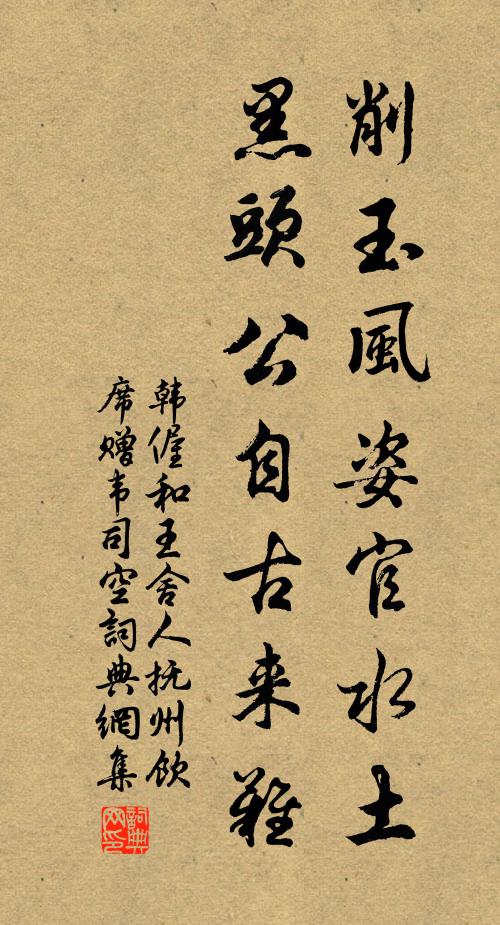 削玉風姿官水土
黑頭公自古来難
韩偓和王舍人抚州饮
席赠韦司空詞典網集
詞典
网印